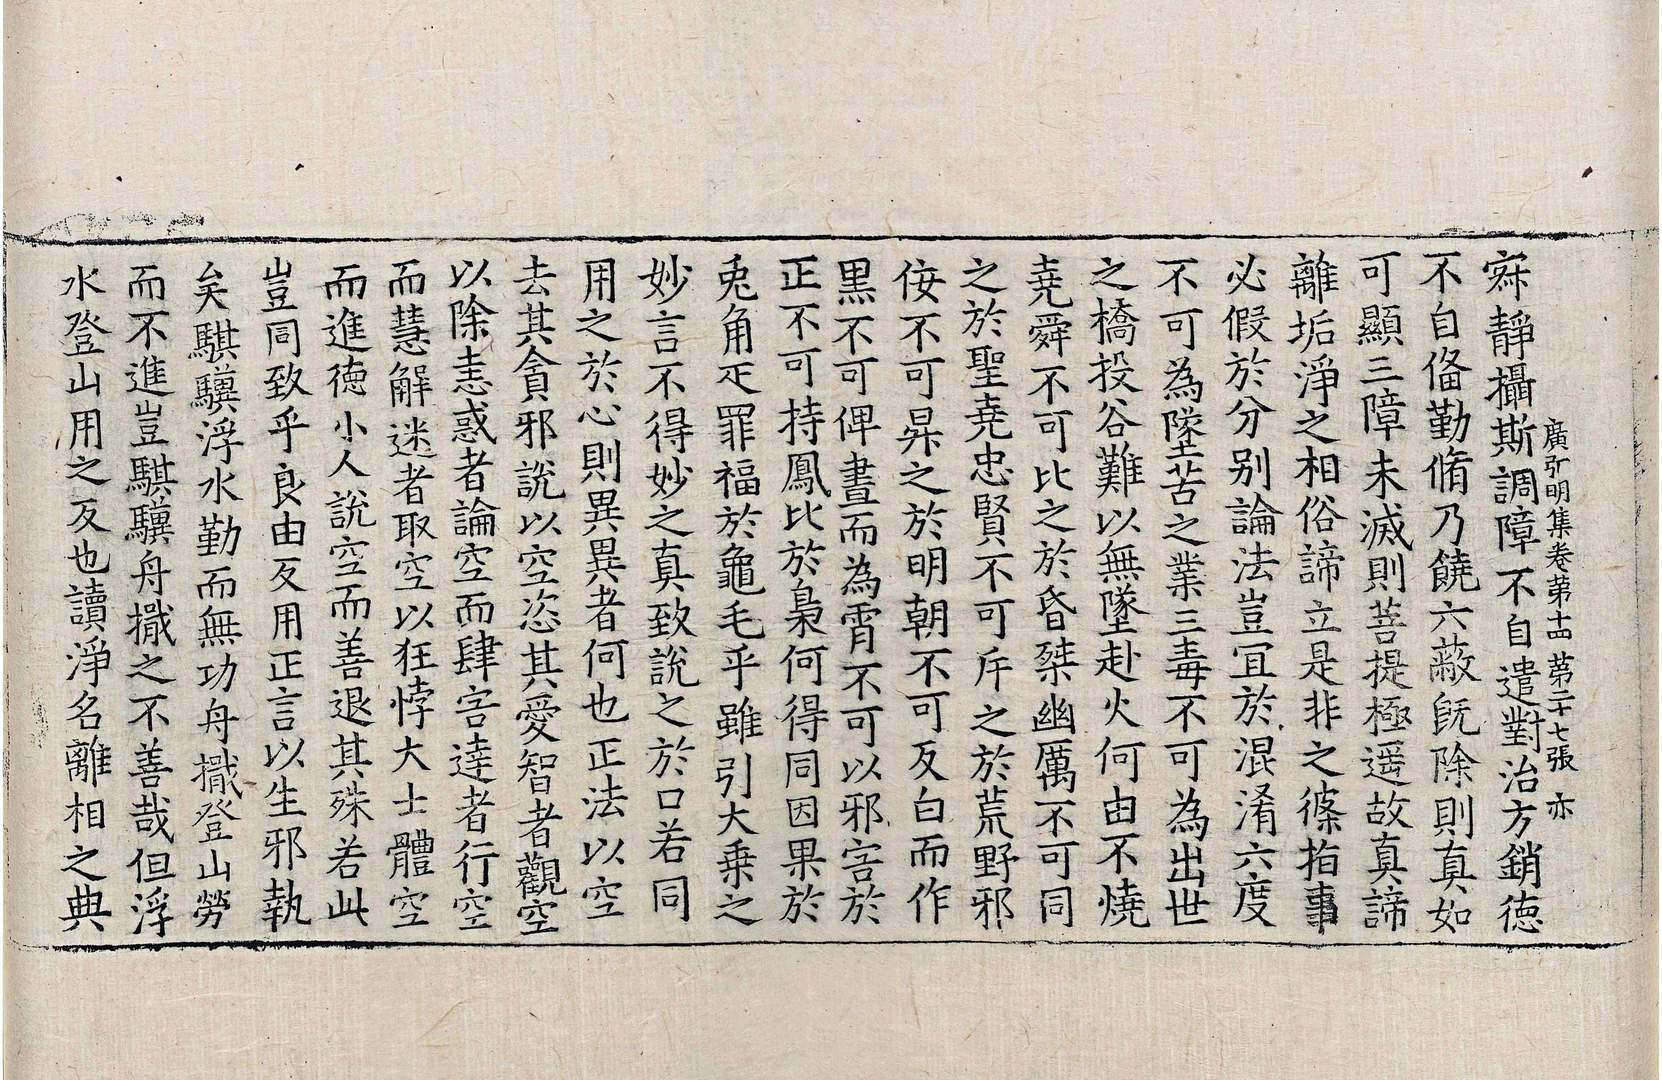 廣弘明集卷苐十四 苐二十七張 亦
寂靜攝斯調障不自遣對治方銷德
不自偹勤脩乃饒六蔽旣除則真如
可顯三障未滅則菩提極遥故真諦
離垢淨之相俗諦立是非之條指事
必假於分别論法豈宜於混淆六度
不可為墜苦之業三毒不可為出世
之橋投谷難以無墜赴火何由不燒
堯舜不可比之於昏桀幽厲不可同
之於聖堯忠賢不可斥之於荒野邪
侫不可昇之於明朝不可反白而作
黒不可俾晝而為霄不可以邪害於
正不可持鳳比於梟何得同因果於
兎角疋罪福於龜毛乎雖引大乗之
妙言不得妙之真致說之於口若同
用之於心則異異者何也正法以空
去其貪邪說以空恣其愛智者觀空
以除恚惑者論空而肆害達者行空
而慧解迷者取空以狂悖大士體空
而進德小人說空而善退其殊若此
豈同致乎良由反用正言以生邪執
矣騏驥浮水勤而無功舟檝登山勞
而不進豈騏驥舟檝之不善哉但浮
水登山用之反也讀淨名離相之典